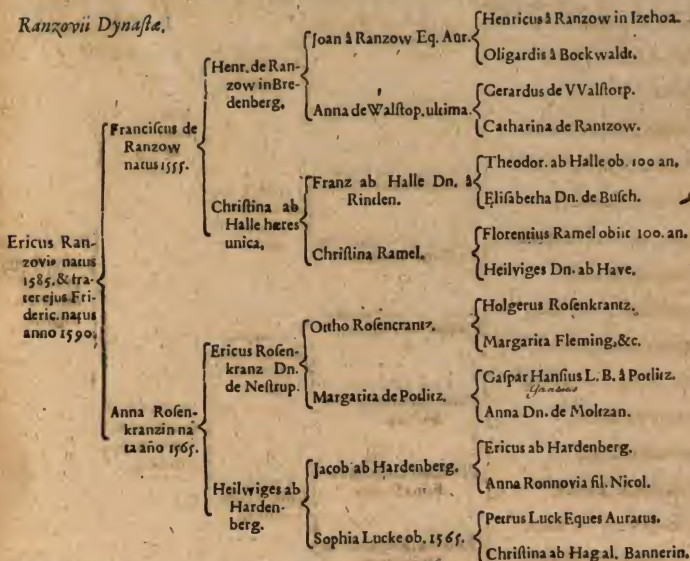 Ranzovii Dynastæ.
Ericus Ran-
zovio natus
1585. & fra-
ter ejus Fri-
deric. natus
anno 1590.
Franciscus de
Ranzow
natus 1555.
Anna Rosen-
kranzin na
ta año 1565.
Henr. de Ran-
zow in Bre-
denberg.
Christina ab
Halle hæres
unica.
Ericus Rosen-
kranz Dn.
de Nestrup.
Heilwiges ab
Harden-
berg.
Joan â Ranzow Eq. Aur.
Anna de Walstop. ultima.
Franz ab Halle Dn. â
Rinden.
Christina Ramel.
Ottho Rosencrantz.
Margarita de Podlitz.
Jacob ab Hardenberg.
Sophia Lucke ob. 1565.
Henricus â Ranzow in Izehoa.
Oligardis â Bockwaldt.
Gerardus de VValstorp.
Catharina de Rantzow.
Theodor. ab Halle ob. 100 an.
Elisabetha Dn. de Busch.
Florentius Ramel obiit 100. an.
Heilviges Dn. ab Have.
Holgerus Rosenkrantz.
Margarita Fleming, &c.
Gaspar Hansius L. B. â Potlitz.
Gansius
Anna Dn. de Moltzan.
Ericus ab Hardenberg.
Anna Ronnovia fil. Nicol.
Petrus Luck Eques Auratus.
Christina ab Hag al. Bannerin.